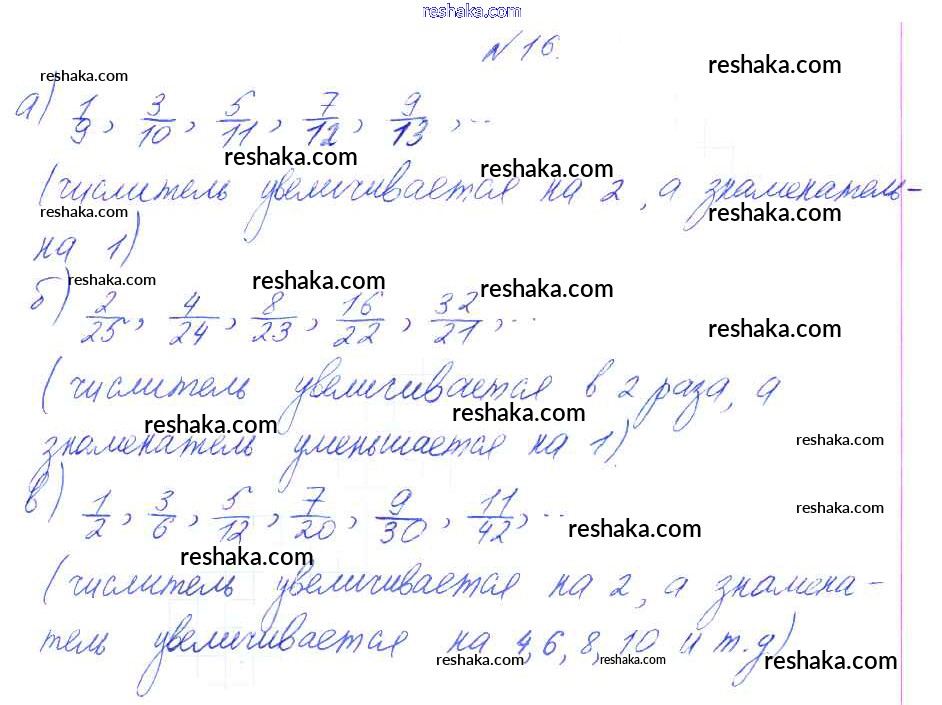 reshaka.com
№ 16.
reshaka.com
reshaka.com
а) 1/9, 3/10, 5/11, 7/12, 9/13, ...
reshaka.com
reshaka.com
(числитель увеличивается на 2, а знаменатель-
reshaka.com
reshaka.com
на 1)
reshaka.com
reshaka.com
reshaka.com
б) 2/25, 4/24, 8/23, 16/22, 32/21, ...
reshaka.com
(числитель увеличивается в 2 раза, а
reshaka.com
reshaka.com
знаменатель уменьшается на 1)
reshaka.com
в) 1/2, 3/6, 5/12, 7/20, 9/30, 11/42, ...
reshaka.com
reshaka.com
reshaka.com
(числитель увеличивается на 2, а знамена-
тель увеличивается на 4, 6, 8, 10 и т.д)
reshaka.com
reshaka.com
reshaka.com